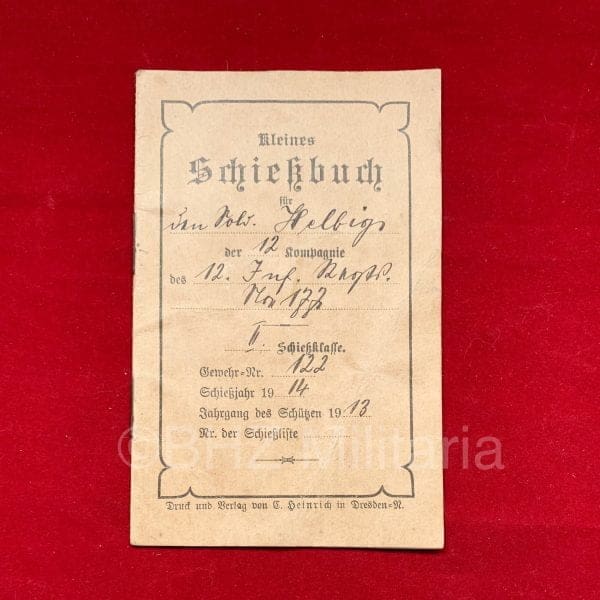 Kleines
Schießbuch
für
den Sold. Helbig
der 12 Kompagnie
des 12. Inf. Regts.
No 177
II. Schießklasse.
Gewehr-Nr. 122
Schießjahr 1914
Jahrgang des Schützen 1913
Nr. der Schießliste
©BHZ Militaria
Druck und Verlag von C. Heinrich in Dresden-N.